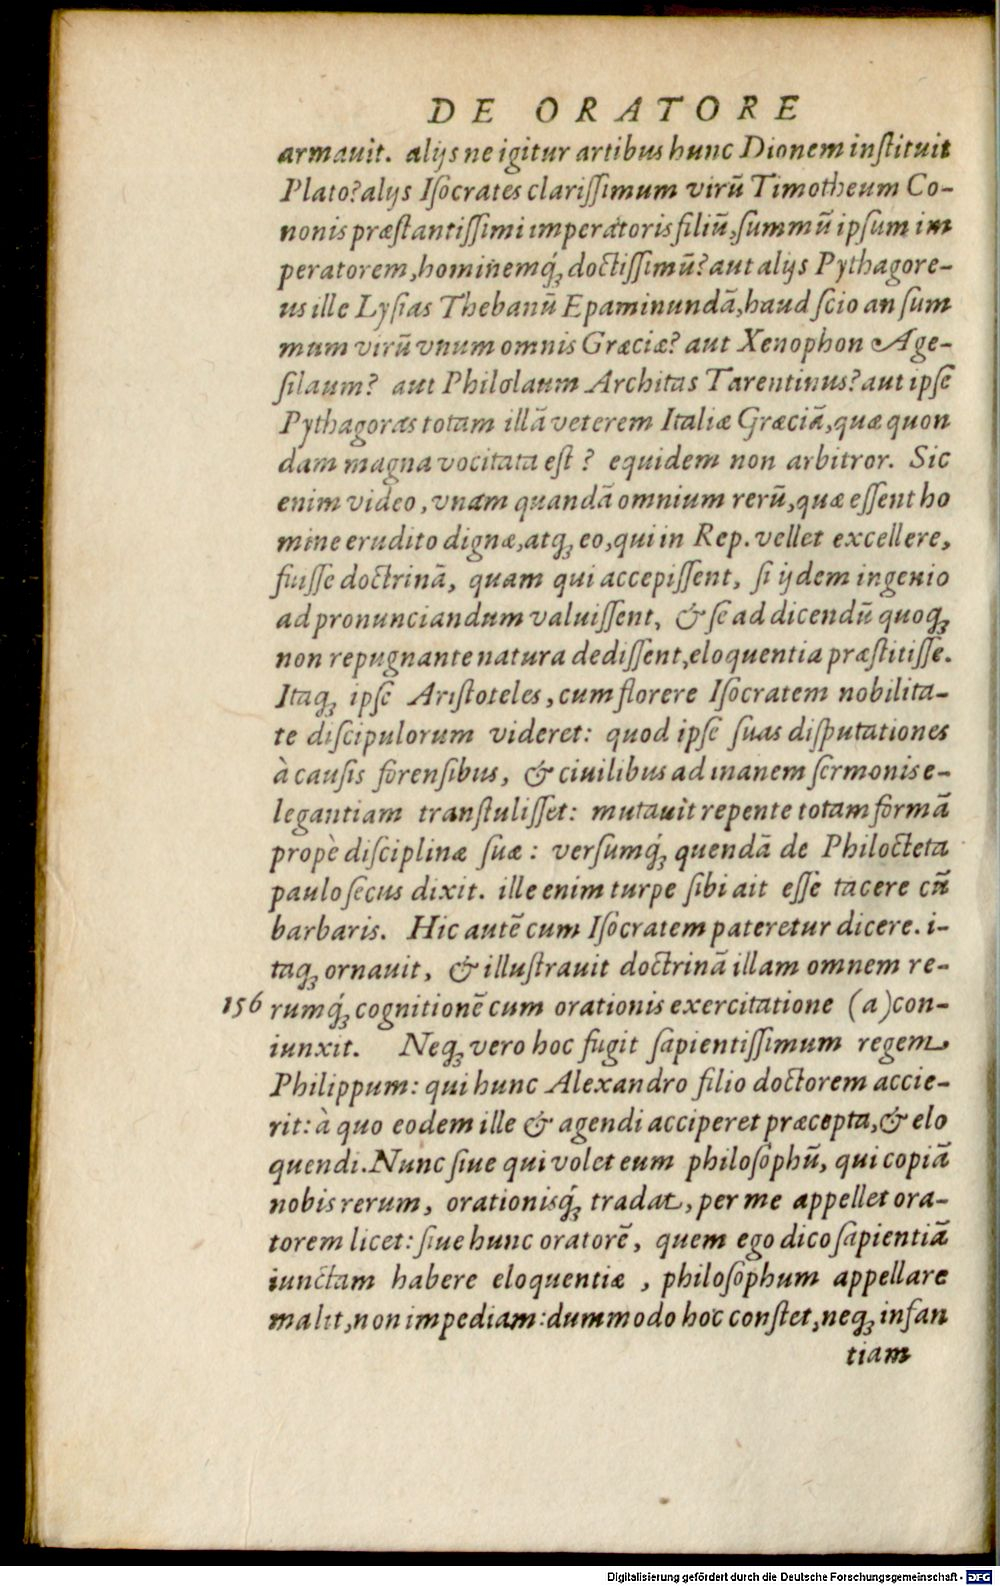 DE ORATORE
armauit. alijs ne igitur artibus hunc Dionem inſtituit
Plato? alijs Iſocrates clariſſimum virũ Timotheum Co-
nonis præſtantiſſimi imperatoris filiũ, ſummũ ipſum im
peratorem, hominemq́ꝫ doctiſſimũ? aut alijs Pythagore-
us ille Lyſias Thebanũ Epaminundã, haud ſcio an ſum
mum virũ vnum omnis Græciæ? aut Xenophon Age-
ſilaum? aut Philolaum Architas Tarentinus? aut ipſe
Pythagoras totam illã veterem Italiæ Græciã, quæ quon
dam magna vocitata eſt? equidem non arbitror. Sic
enim video, vnam quandã omnium rerũ, quæ eſſent ho
mine erudito dignæ, atqꝫ eo, qui in Rep. vellet excellere,
fuiſſe doctrinã, quam qui accepiſſent, ſi ijdem ingenio
ad pronunciandum valuiſſent, & ſe ad dicendũ quoqꝫ
non repugnante natura dediſſent, eloquentia præſtitiſſe.
Itaqꝫ ipſe Ariſtoteles, cum florere Iſocratem nobilita-
te diſcipulorum videret: quod ipſe ſuas diſputationes
à cauſis forenſibus, & ciuilibus ad inanem ſermonis e-
legantiam tranſtuliſſet: mutauit repente totam formã
propè diſciplinæ ſuæ: verſumq́ꝫ quendã de Philocteta
paulo ſecus dixit. ille enim turpe ſibi ait eſſe tacere cũ
barbaris. Hic autẽ cum Iſocratem pateretur dicere. i-
taqꝫ ornauit, & illuſtrauit doctrinã illam omnem re-
156 rumq́ꝫ cognitionẽ cum orationis exercitatione (a) con-
iunxit. Neqꝫ vero hoc fugit ſapientiſſimum regem
Philippum: qui hunc Alexandro filio doctorem accie-
rit: à quo eodem ille & agendi acciperet præcepta, & elo
quendi. Nunc ſiue qui volet eum philoſophũ, qui copiã
nobis rerum, orationisq́ꝫ tradat, per me appellet ora-
torem licet: ſiue hunc oratorẽ, quem ego dico ſapientiã
iunctam habere eloquentiæ, philoſophum appellare
malit, non impediam: dummodo hoc conſtet, neqꝫ infan
tiam
Digitalisierung gefördert durch die Deutsche Forschungsgemeinschaft - DFG